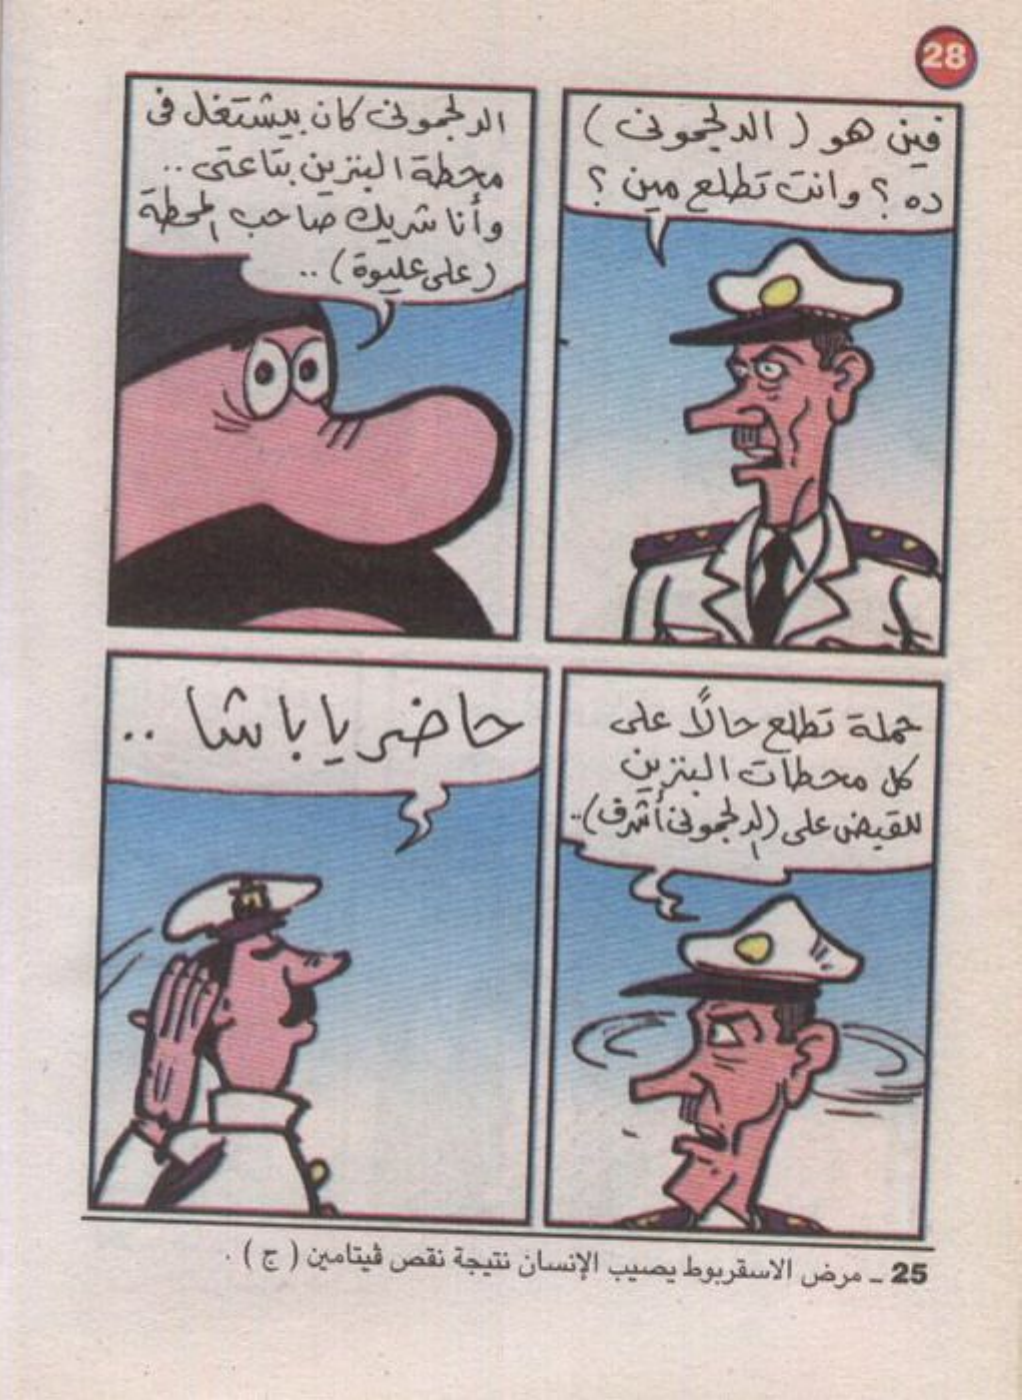 28
فين هو ( الدلجمونى )
ده ؟ وانت تطلع مين ؟
الدلجمونى كان بيشتغل فى
محطة البنزين بتاعتى ..
وأنا شريك صاحب المحطة
(على عليوة) ..
حملة تطلع حالاً على
كل محطات البنزين
للقبض على (الدلجمونى أشرف) ..
حاضر يا باشا ..
25 ــ مرض الاسقربوط يصيب الإنسان نتيجة نقص ڤيتامين ( ج ) .